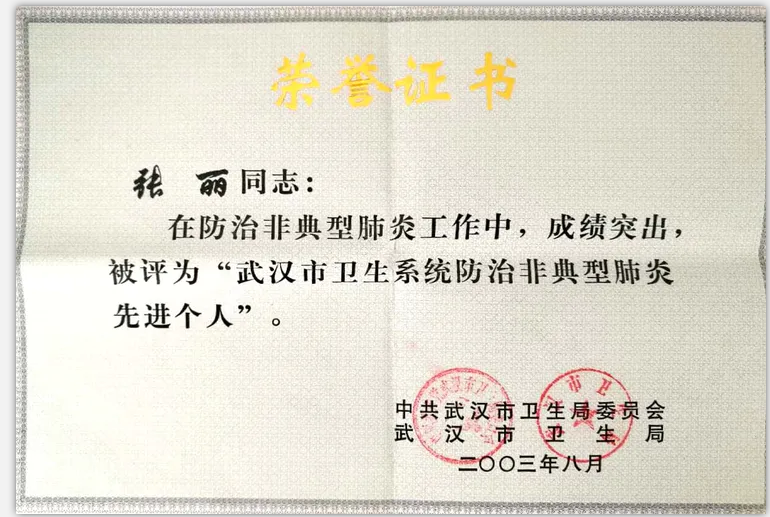 荣誉证书
张 丽同志：
在防治非典型肺炎工作中，成绩突出，
被评为“武汉市卫生系统防治非典型肺炎
先进个人”。
中共武汉市卫生局委员会
武汉市卫生局
二〇〇三年八月